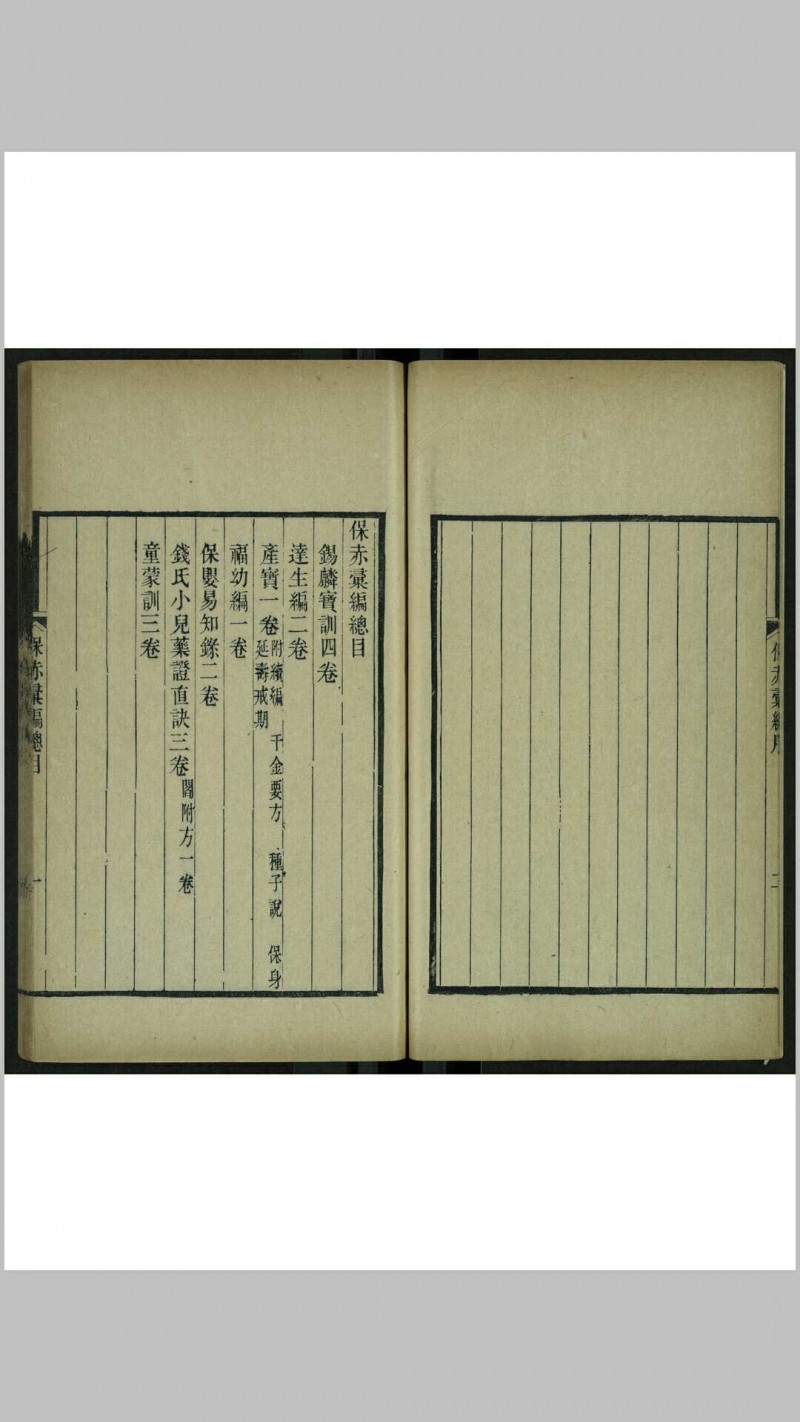 保赤彙編總目
錫麟寶訓四卷
達生編二卷
產寶一卷附續編 千金要方 種子說 保身
延壽戒期
福幼編一卷
保嬰易知錄二卷
錢氏小兒藥證直訣三卷閻附方一卷
童蒙訓三卷
保赤彙編總目 一